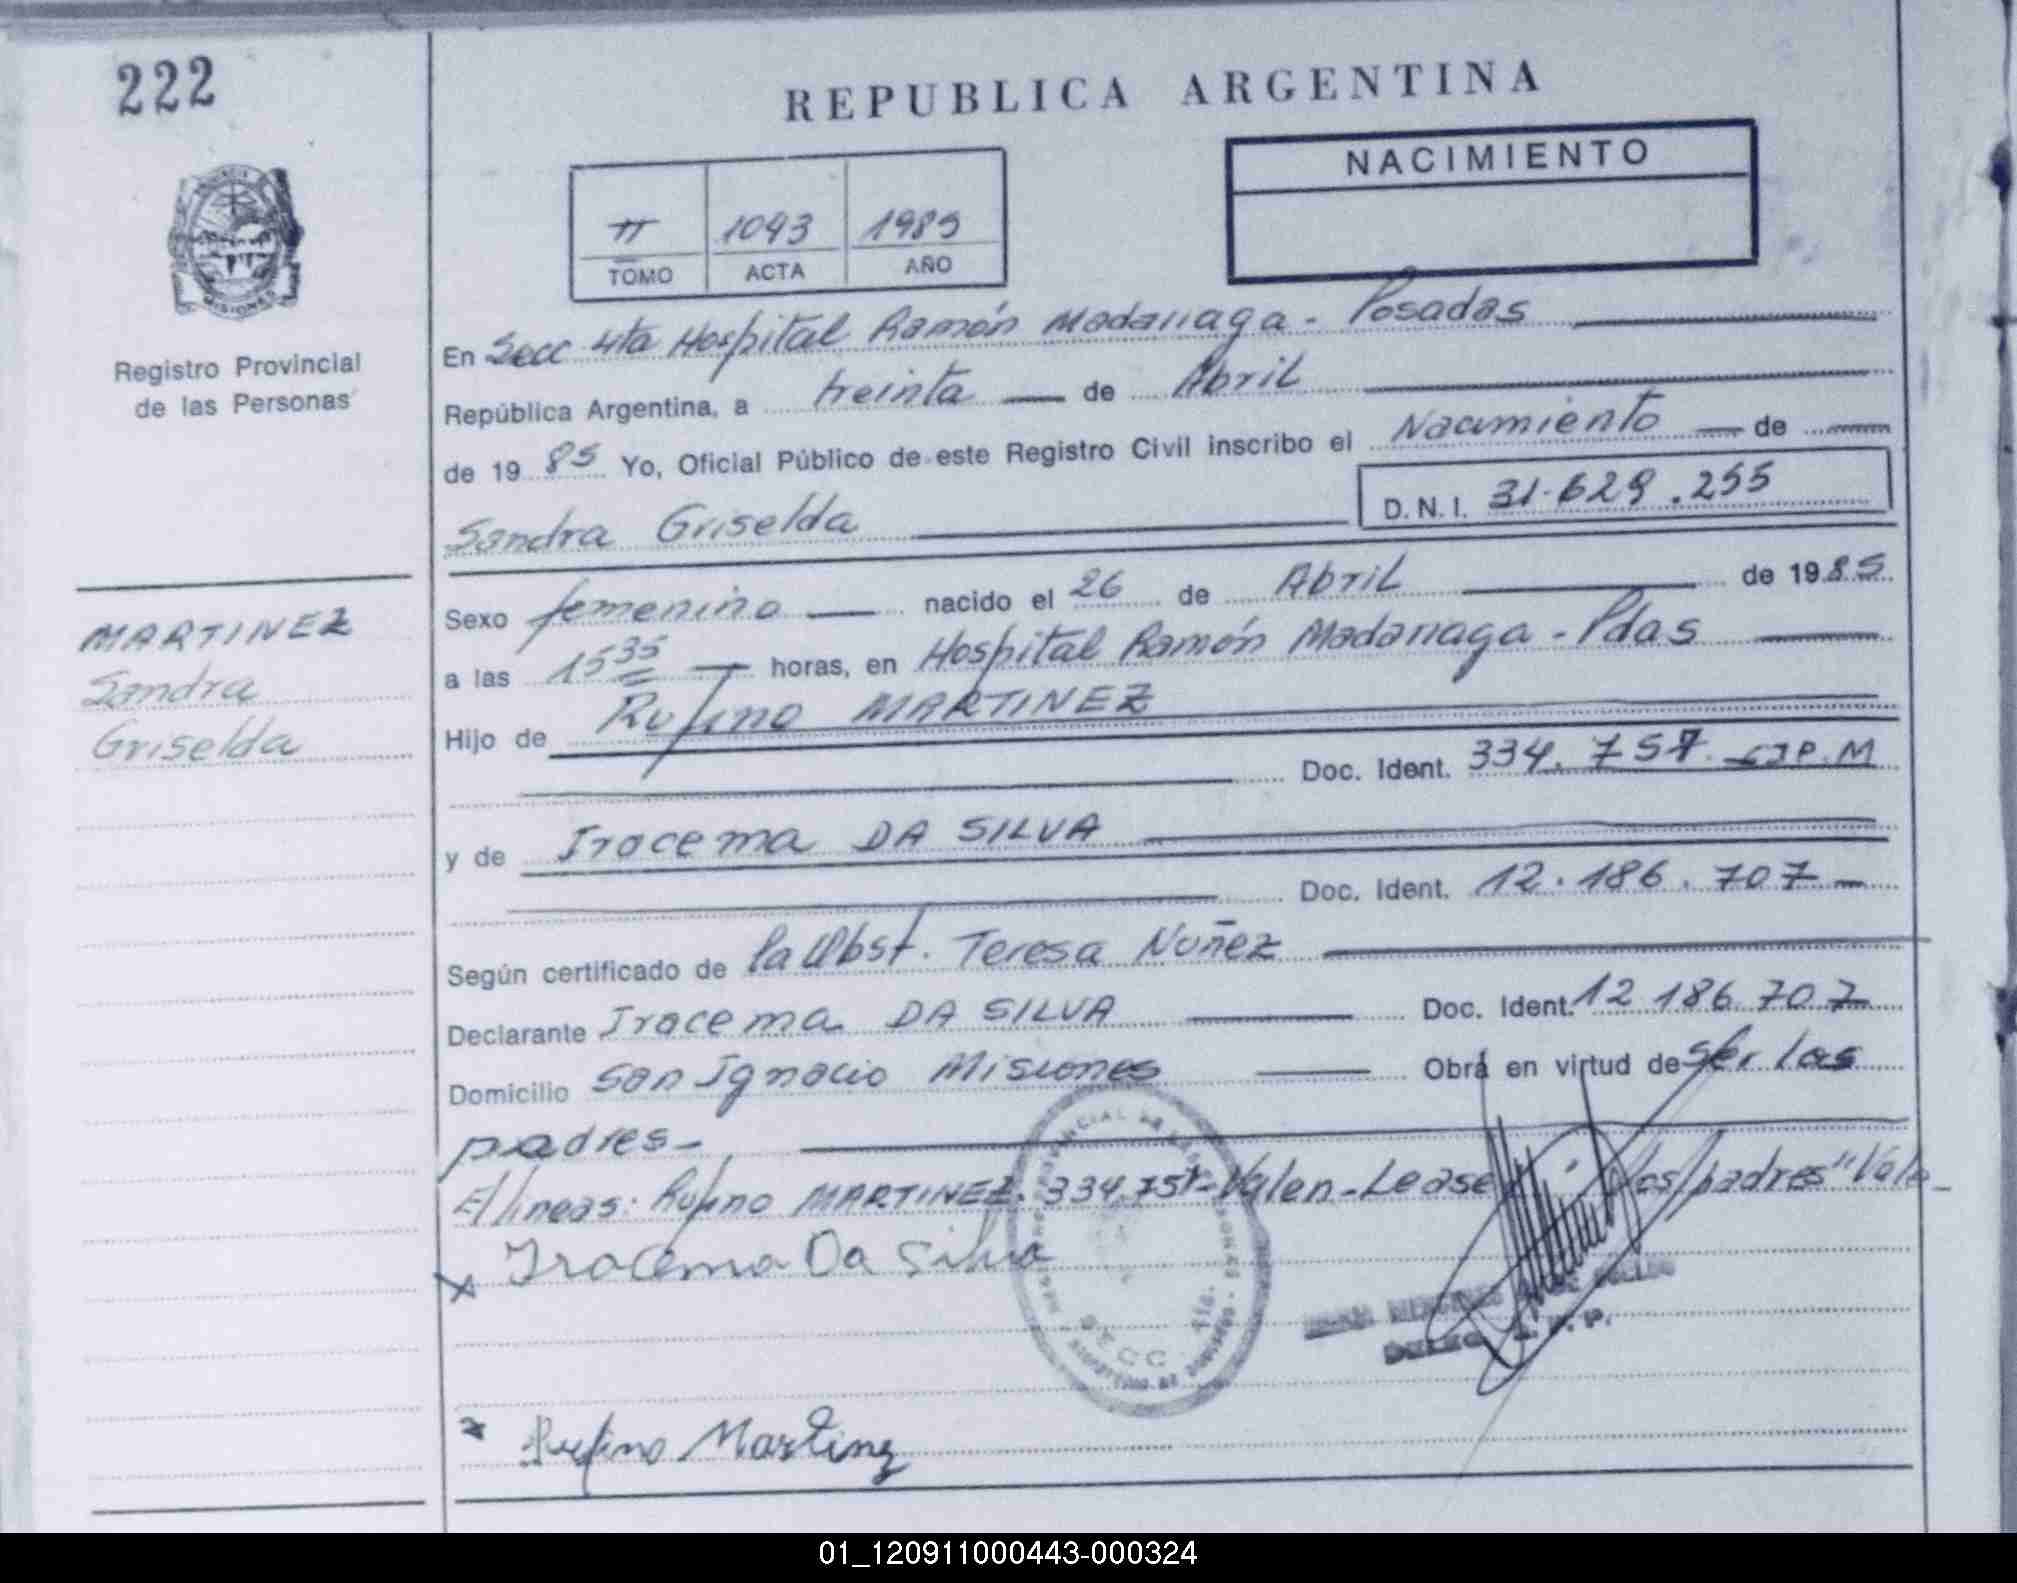 222
REPUBLICA ARGENTINA
NACIMIENTO
1093
1985
TOMO
ACTA
AÑO
MISIONES
Registro Provincial
de las Personas
MARTINEZ
Sandra
Griselda
En Secc 4ta Hospital Ramón Madariaga - Posadas
República Argentina, a treinta — de Abril
de 1985 Yo, Oficial Público de este Registro Civil inscribo el Nacimiento — de
Sandra Griselda
D.N.I. 31.629.255
Sexo femenino — nacido el 26 de Abril de 1985
a las 15 35 — horas, en Hospital Ramón Madariaga - Pdas
Hijo de Rufino MARTINEZ
Doc. Ident. 334.757. C.I.P.M
y de Iracema DA SILVA
Doc. Ident. 12.186.707 —
Según certificado de la Obst. Teresa Nuñez
Declarante Iracema DA SILVA — Doc. Ident. 12 186 707
Domicilio San Ignacio Misiones — Obra en virtud de ser los
padres -
E/lineas: Rufino MARTINEZ. 334.757 - Valen - Lease los padres" Vale -
x Iracema Da Silva
SECC. 4ta.
x Rufino Martinez
01_120911000443-000324